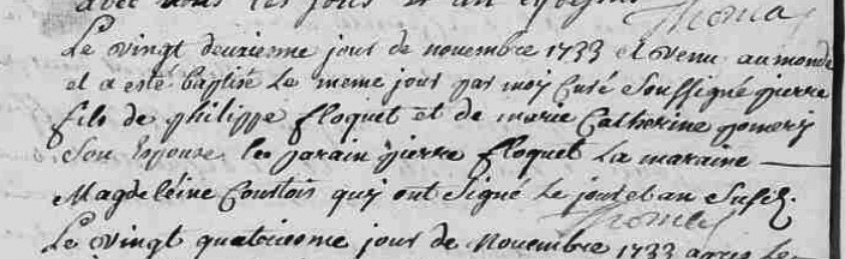 avec nous les jour et an
Thoma
Le vingt deuxiesme jour de novembre 1733 est venu au monde
et a esté baptisé le meme jour par moy Curé soussigné pierre
fils de philippe floquet et de marie Catherine pomery
son Epouse le parain pierre floquet la maraine
Magdeleine Courtois quy ont signé le jour et an susd.
Thoma
Le vingt quatriesme jour de Novembre 1733 apres le